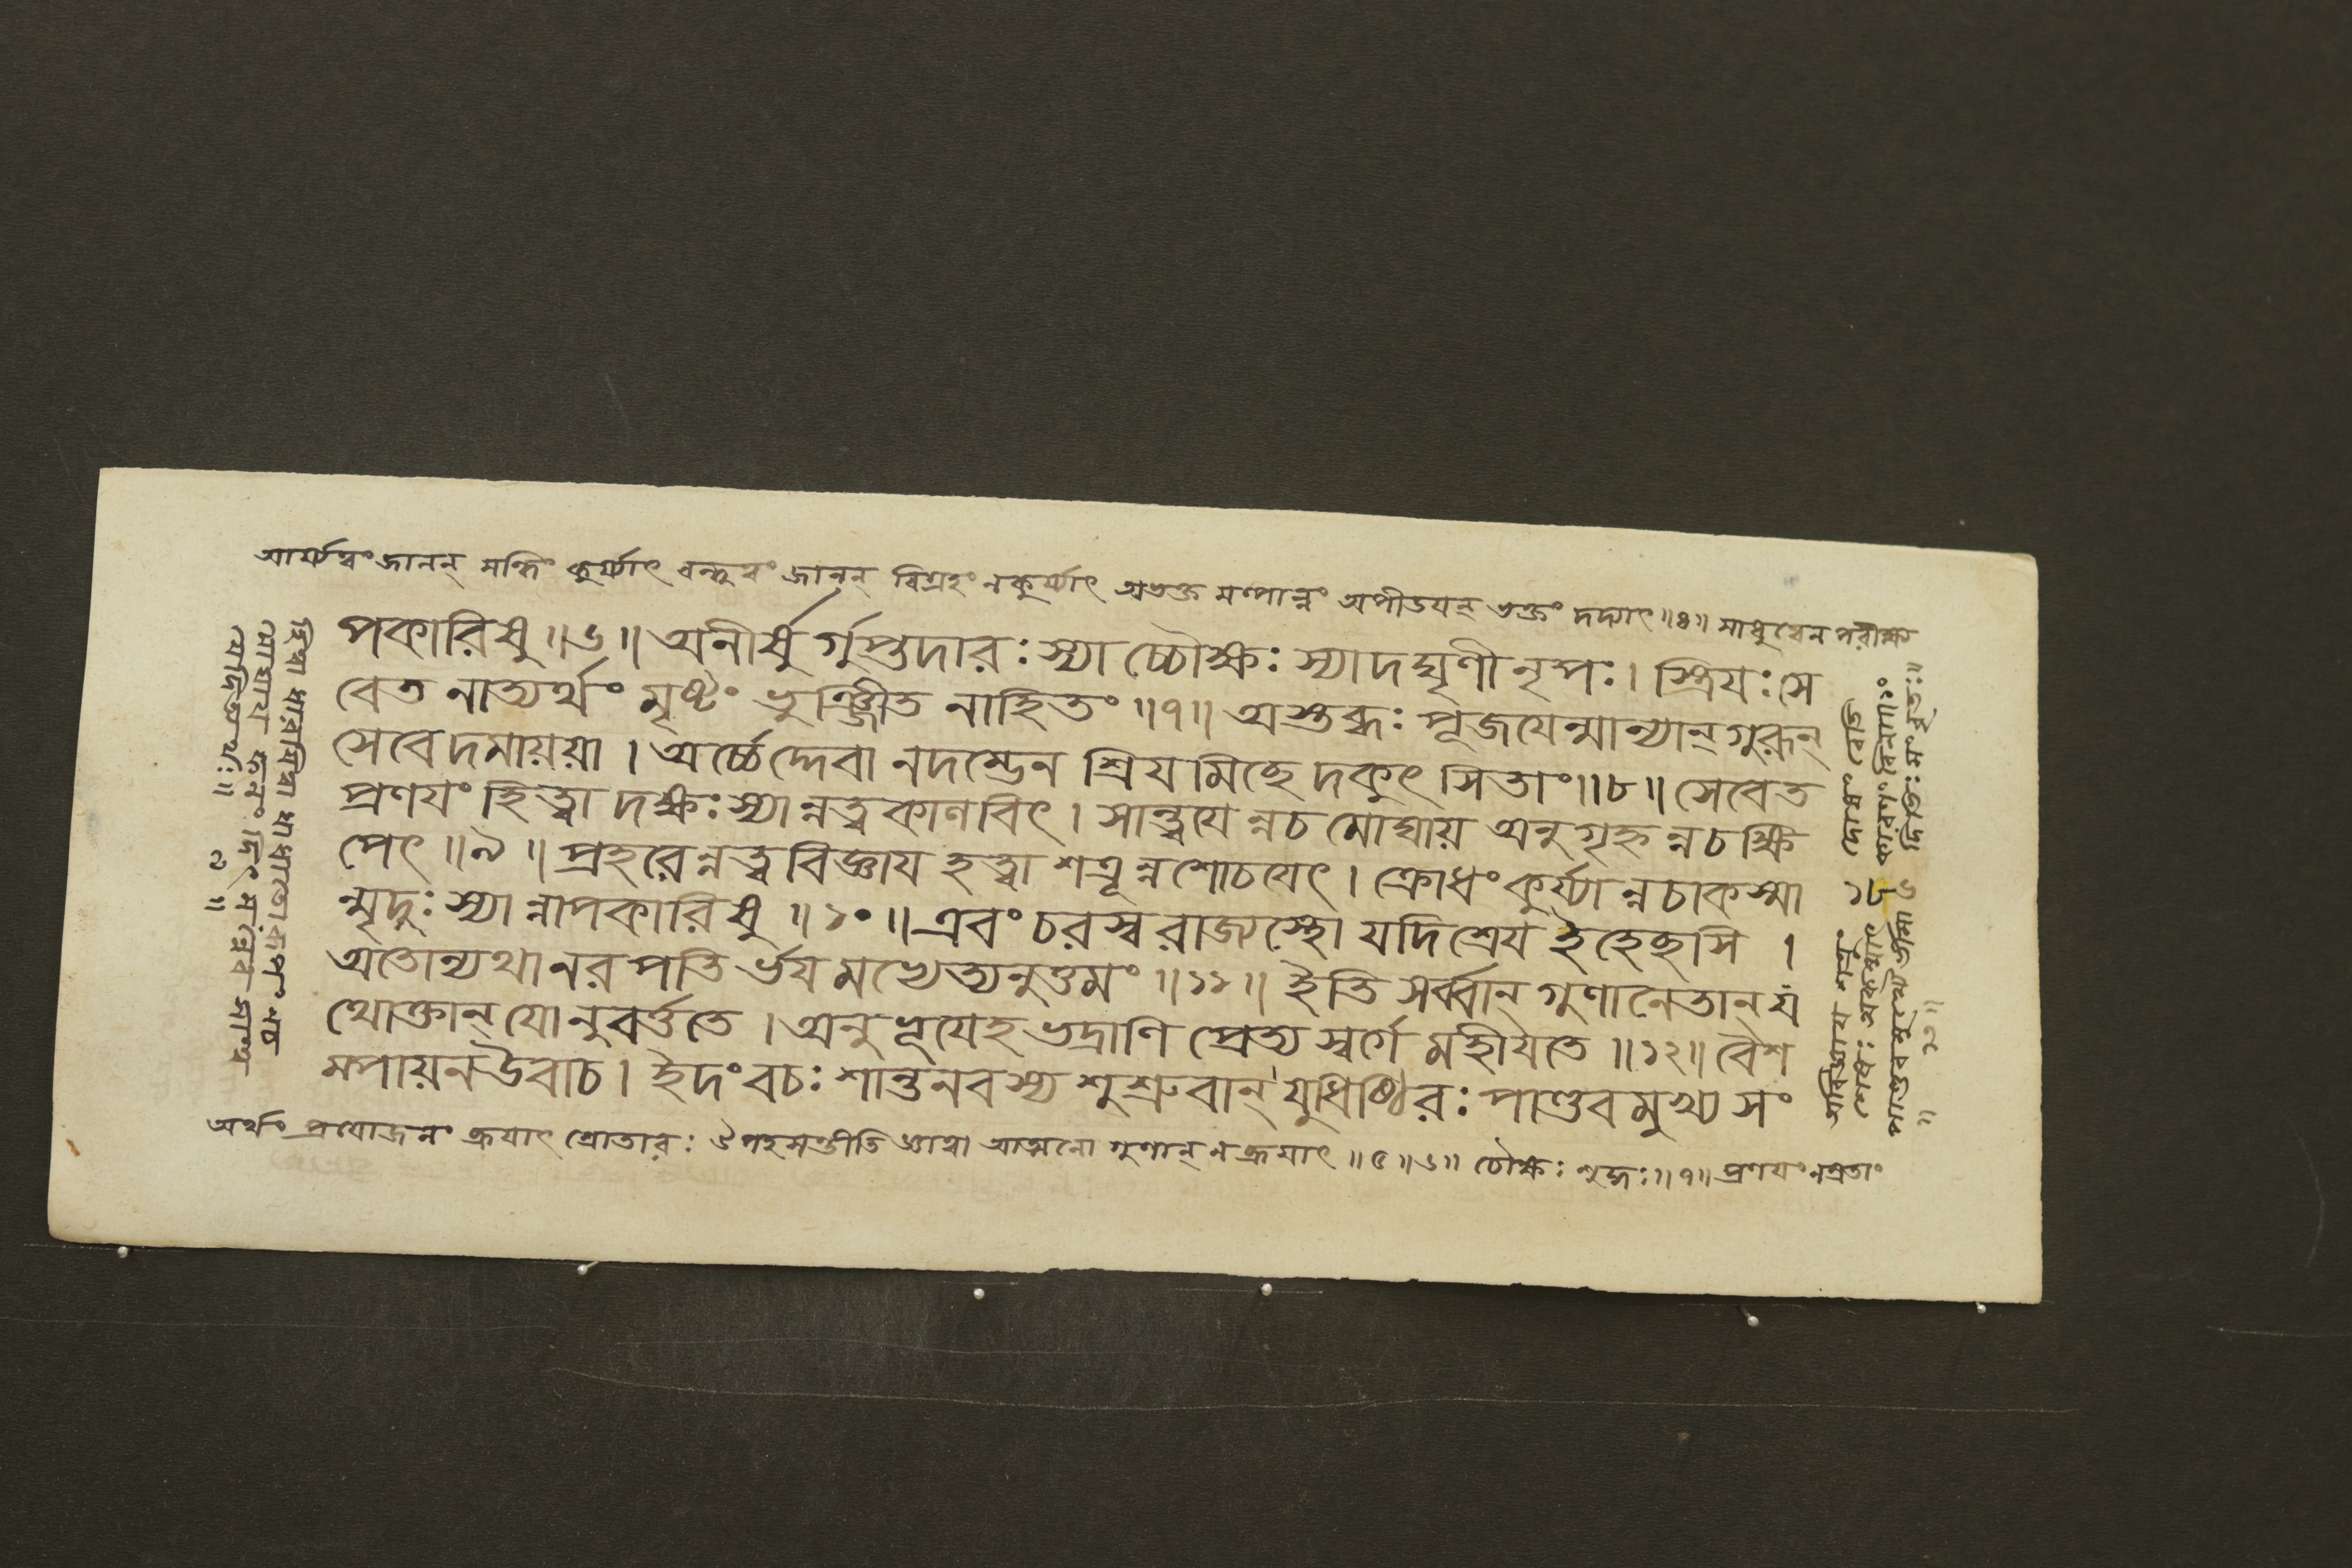 আর্য্যত্বং জানন্ সন্ধিং কুর্য্যাৎ বন্ধুত্বং জানন্ বিগ্রহং নকুর্য্যাৎ অভক্ত অপীডযন্ ভক্তং দদ্যাৎ ॥৪॥ সাধুত্বেন পরীক্ষ
পকারিষু ॥৬॥ অনীর্ষু র্গুপ্তদারঃ স্যাচ্চৌক্ষঃ স্যাদঘৃণী নৃপঃ। স্ত্রিযঃ সে
বেত নাত্যর্থং মৃষ্টং ভুঞ্জীত নাহিতং ॥৭॥ অস্তব্ধঃ পূজযেন্মান্যান্ গুরূন্
সেবেদমায়য়া । অর্চ্চেদ্দেবা নদম্ভেন শ্রিয মিছে দকুৎ সিতাং॥৮॥ সেবেত
প্রণযং হিত্বা দক্ষঃ স্যান্নত্ব কাণবিৎ । সান্ত্বযে ন্নচ মোঘায় অনুগৃহ্ন ন্নচ ক্ষি
পেৎ ॥৯॥ প্রহরেন্নত্ব বিজ্ঞায হত্বা শত্রূন্ন শোচযেৎ । ক্রোধং কুর্য্যান্নচাকস্মা
ন্মৃদুঃ স্যান্নাপকারিষু ॥১০॥ এবং চরস্ব রাজ্যস্থো যদি শ্রেয ইহেছসি ।
অতোন্যথা নরপতি র্ভযমর্ছেত্যনুত্তমং ॥১১॥ ইতি সর্ব্বান্ গুণানেতান্ য
থোক্তান্ যোনুবর্ত্ততে । অনুভূযেহ ভদ্রাণি প্রেত্য স্বর্গে মহীযতে ॥১২॥ বৈশ
ম্পায়ন উবাচ । ইদং বচঃ শান্তনবস্য শুশ্রুবান্ যুধিষ্ঠিরঃ পাণ্ডবমুখ্য সং
অর্থং প্রযোজনং ব্রূযাৎ শ্রোতারঃ জ্ঞাত্বা আত্মনো গুণান্ ন ব্রূযাৎ ॥৫॥৬॥ চৌক্ষঃ শুদ্ধঃ॥৭॥ প্রণযং নম্রতাং
অবিজ্ঞায শত্রুং ১৮৬